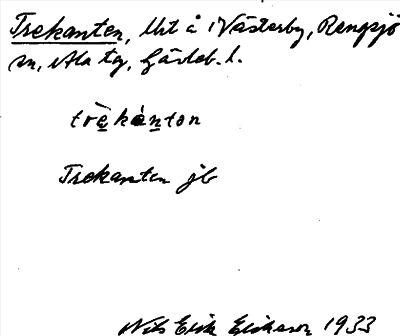 Trekanten, Uht å Västerby, Rengsjö
sn, Ala tg, Gävleb. l.
trèkánton
Trekanten jb
Nils Erik Eriksson 1933